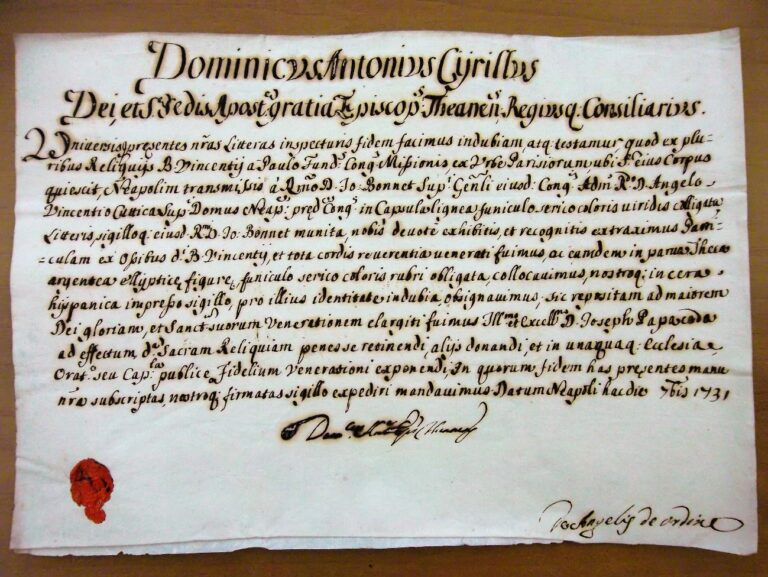 Dominicvs Antonivs Cyrillvs
Dei, et S. Sedis Apostᶜᵃ gratia Episcopˢ Theanenˢ Regivsq; Consiliarivs.
Vniversis presentes nr̃as Litteras inspecturis fidem facimus indubiam atq; testamur quod ex plu-
ribus Reliquijs B. Vincentij a Paulo Fundˢ Congˢ Missionis, ex Vrbe Parisiorum ubi Eius Corpus
quiescit, Neapolim transmissis a Rmo D. Jo: Bonnet Supˢ Genl̃i eiusd: Congˢ Admˢ Rˢ D. Angelo
Vincentio Cuttica Supˢ Domus Neapˢ predˢ Congˢ in Capsula lignea funiculo serico coloris viridis colligata
Litteris, sigilloq; eiusd: Rˢ D. Jo: Bonnet munita, nobis devotè exhibitis, et recognitis extraximus Parti-
culam ex Ossibus dˢ B. Vincentij, et tota cordis reverentia venerati fuimus, ac eamdem in parua Theca
argentea ellyptice figure, funiculo serico coloris rubri obligata, collocauimus, nostroq; in cera
hispanica impresso sigillo, pro illius identitate indubia, obsignauimus; sic repositam ad maiorem
Dei gloriam, et Sanctˢ suorum Venerationem elargiti fuimus Illmo et Excell. D. Joseph Papacoda
ad effectum dˢ Sacram Reliquiam penes se retinendi, alijs donandi, et in unaquaq; Ecclesia
Oratˢ seu Capˡᵃ publice Fidelium Venerationi exponendi, In quorum fidem has presentes manu
nr̃a subscriptas, nostroq; firmatas sigillo expediri mandauimus Datum Neapoli hac die 7bris 1731
de Angelis de ordine